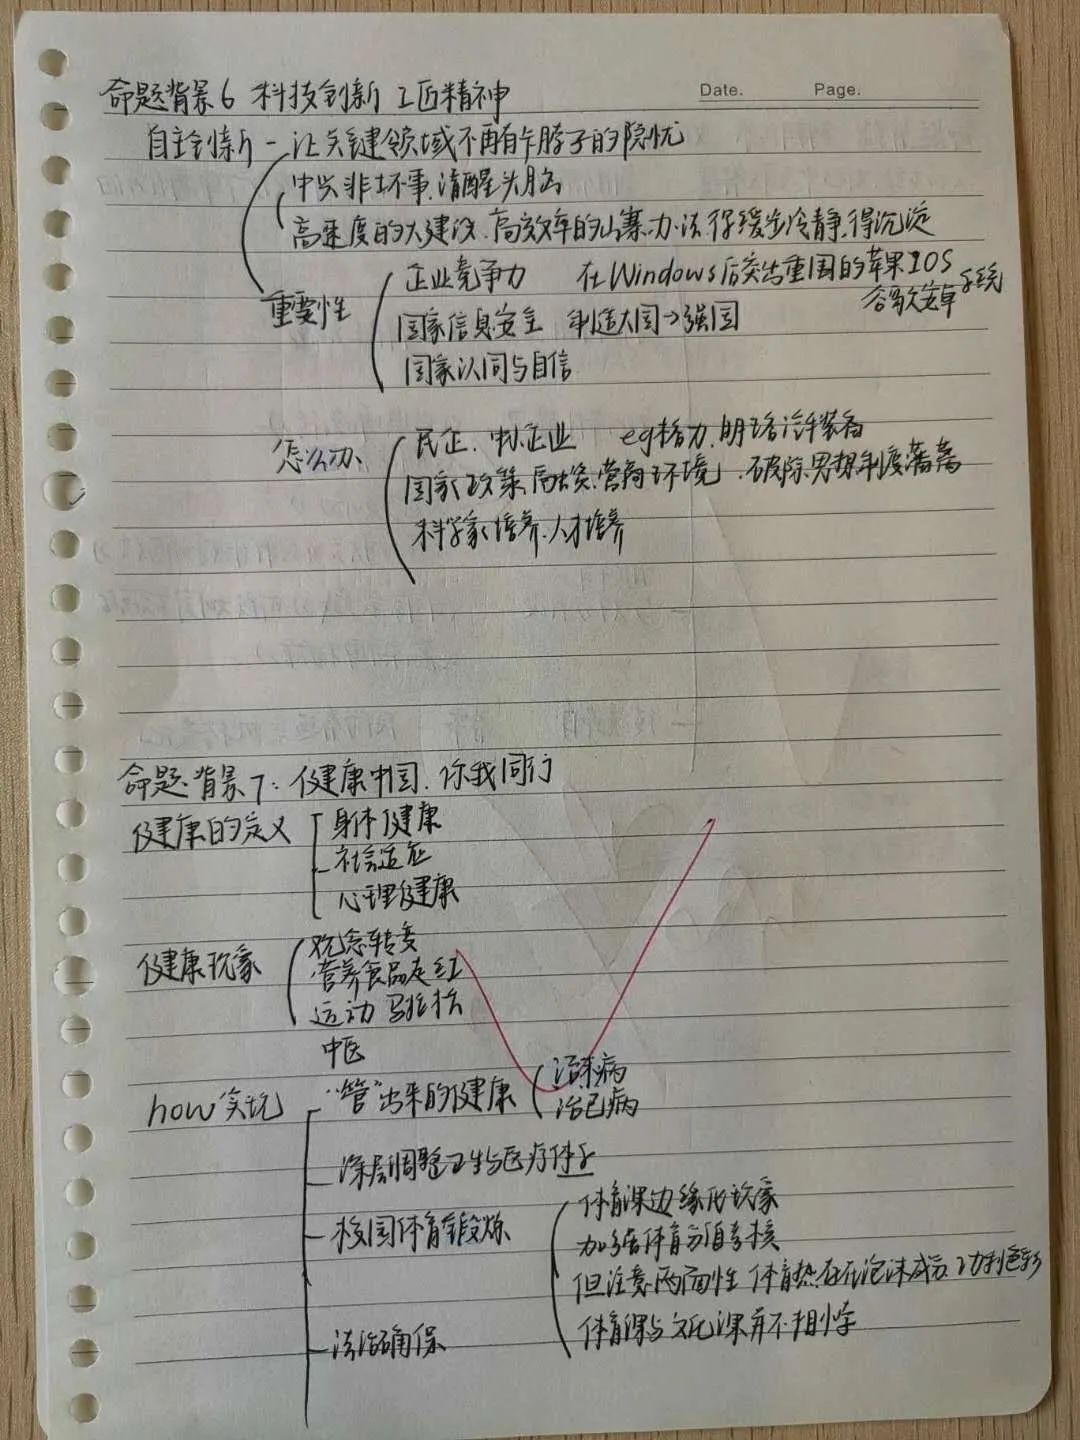 Date. Page.
命题背景6 科技创新 工匠精神
自主创新 - 让关键领域不再有卡脖子的隐忧
中兴非坏事,清醒头脑
高速度的大建设、高效率的山寨办法得缓步冷静,得沉淀
重要性
企业竞争力 在Windows后突出重围的苹果IOS
谷歌安卓系统
国家信息安全 制造大国→强国
国家认同与自信
怎么办
民企、中小企业 eg格力、明珞汽车装备
国家(政策、融资、营商环境)、破除思想制度藩篱
科学家培养、人才培养
命题背景7:健康中国,你我同行
健康的定义
身体健康
社会适应
心理健康
健康现象
观念转变
营养食品走红
运动 马拉松
中医
how实现
"管"出来的健康
治未病
治已病
深层调整卫生与医疗体系
校园体育锻炼
体育课边缘化现象
加强体育分值考核
但注意两面性 体育热存在泡沫成分、功利色彩
体育课与文化课并不相悖
法治确保